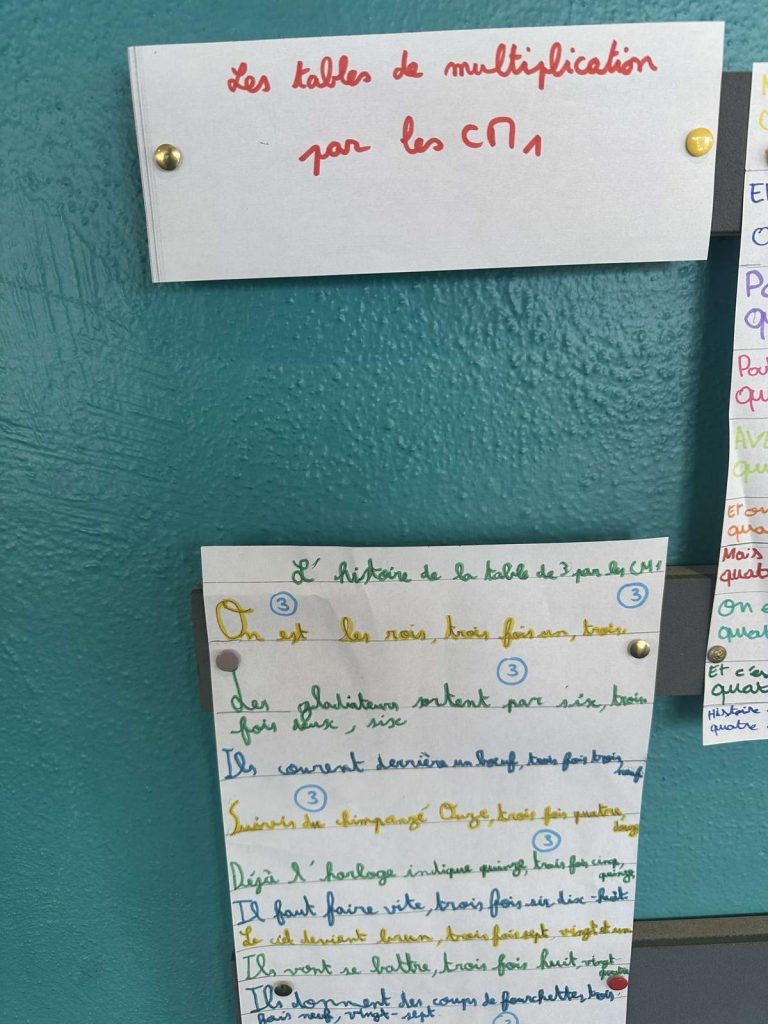 Les tables de multiplication
par les CM1
L'histoire de la table de 3 par les CM1
3
3
On est les rois, trois fois un, trois.
3
Les gladiateurs sortent par six, trois
fois deux, six
Ils courent derrière un bœuf, trois fois trois,
neuf
3
Suivis du chimpanzé Ouze, trois fois quatre,
douze
3
Déjà l'horloge indique quinze, trois fois cinq,
quinze
Il faut faire vite, trois fois six dix-huit
Le ciel devient brun, trois fois sept vingt et un
Ils vont se battre, trois fois huit, vingt
quatre
Ils donnent des coups de fourchettes, trois
fois neuf, vingt-sept
3
El
O
Po
qu
Pou
qu
AVE
qu
Et on
qua
Mais
quat
On e
quat
Et c'es
quat
Histoire
quatre